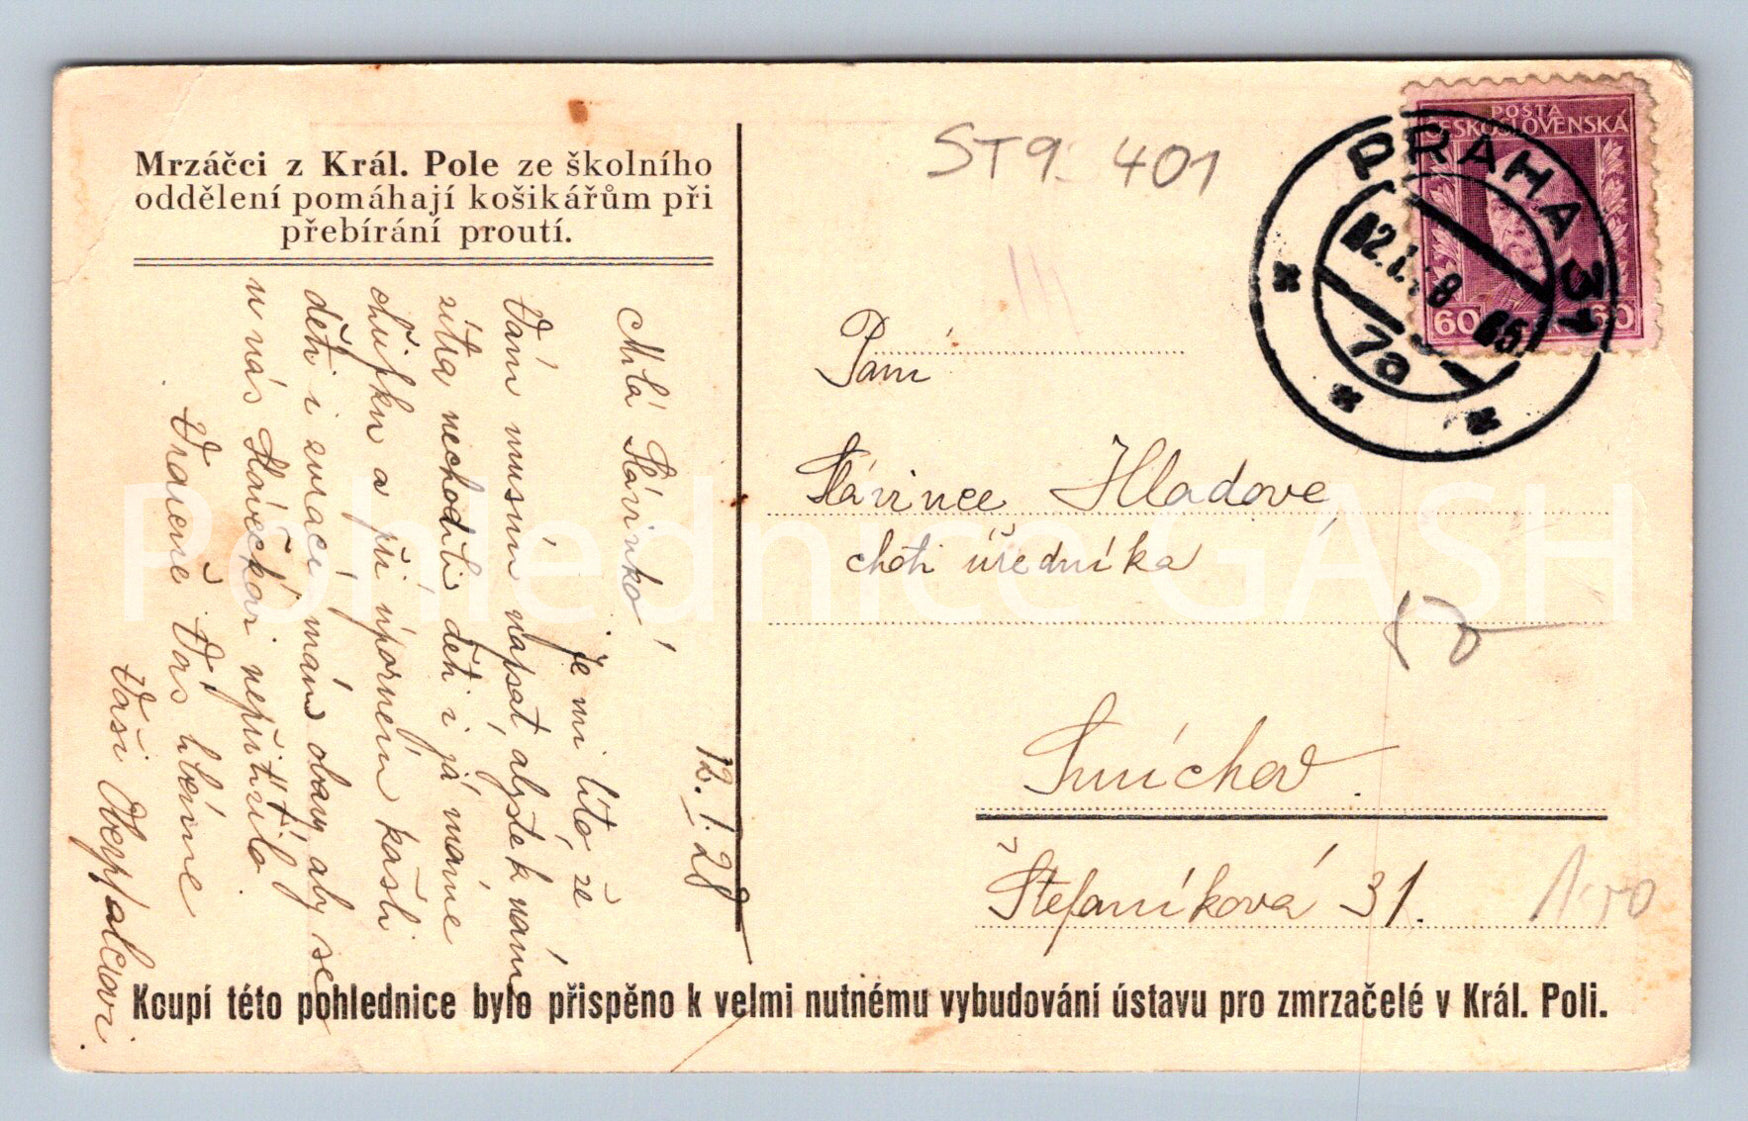 Mrzáčci z Král. Pole ze školního
oddělení pomáhají košikářům při
přebírání proutí.
12. I. 28
Milá Slávinko!
je mi líto že
Vám musím napsat, abyste k nám
zítra nechodili, děti i já máme
chřipku a při úporném kašli
dětí i zvrací mám obavy aby se
u nás Slávečkovi nepřitížilo.
Vraceně Vás líbáme
Vaši
ST9. 401
POŠTA
ČESKOSLOVENSKÁ
60
60
PRAHA 31
12. I. 8
7a
Paní
Slávince Hladové
choti úředníka
Smíchov.
Štefaníková 31.
150
Koupí této pohlednice bylo přispěno k velmi nutnému vybudování ústavu pro zmrzačelé v Král. Poli.
Pohlednice GASH